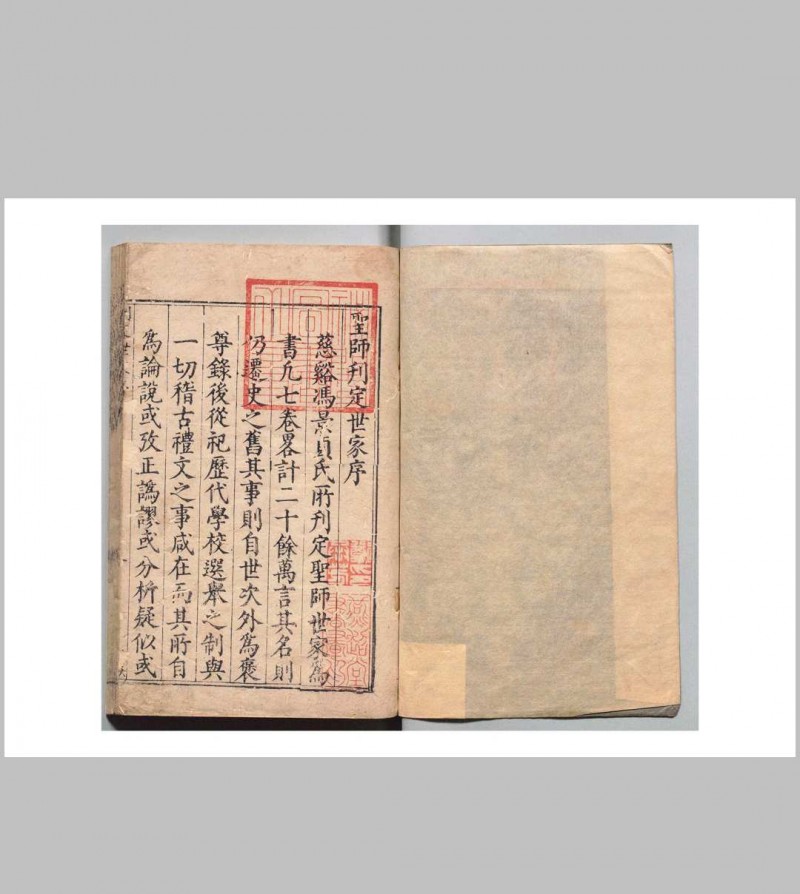 聖師刋定世家序
慈谿馮景貞氏所刋定聖師世家爲
書凡七卷畧計二十餘萬言其名則
仍遷史之舊其事則自世次外爲褒
尊錄後從祀歷代學校選舉之制與
一切稽古禮文之事咸在焉其所自
爲論說或攷正譌謬或分析疑似或